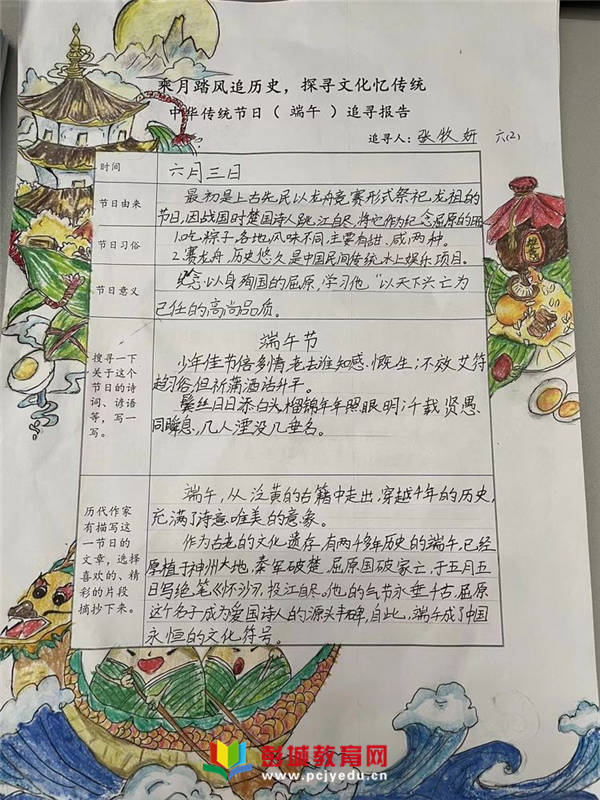 乘月踏风追历史，探寻文化忆传统
中华传统节日（ 端午 ）追寻报告
追寻人：张牧妍 六(2)
时间
六月三日
节日由来
最初是上古先民以龙舟竞赛形式祭祀龙祖的
节日,因战国时楚国诗人跳江自尽,将它作为纪念屈原的
节日习俗
1.吃粽子,各地风味不同,主要有甜、咸两种。
2.赛龙舟,历史悠久是中国民间传统水上娱乐项目。
节日意义
纪念以身殉国的屈原,学习他"以天下兴亡为
己任的高尚品质。
搜寻一下
关于这个
节日的诗
词、谚语
等，写一
写。
端午节
少年佳节倍多情,老去谁知感慨生;不效艾符
趋习俗,但祈蒲酒话升平。
鬓丝日日添白头,榴锦年年照眼明;千载贤愚
同瞬息,几人湮没几垂名。
历代作家
有描写这
一节日的
文章，选择
喜欢的、精
彩的片段
摘抄下来。
端午,从泛黄的古籍中走出,穿越千年的历史,
充满了诗意唯美的意象。
作为古老的文化遗存,有两千多年历史的端午,已经
厚植于神州大地,秦军破楚,屈原国破家亡,于五月五
日写绝笔《怀沙》,投江自尽。他的气节永垂千古,屈原
这个名子成为爱国诗人的源头丰碑,自此,端午成了中国
永恒的文化符号。
彭城教育网
www.pcjyedu.cn